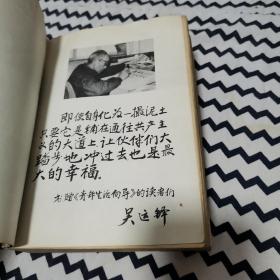 即使自身化为一撮泥土
只要它是铺在通往共产主
义的大道上让伙伴们大
踏步地冲过去也是最
大的幸福.
书赠《青年生活向导》的读者们
吴运铎